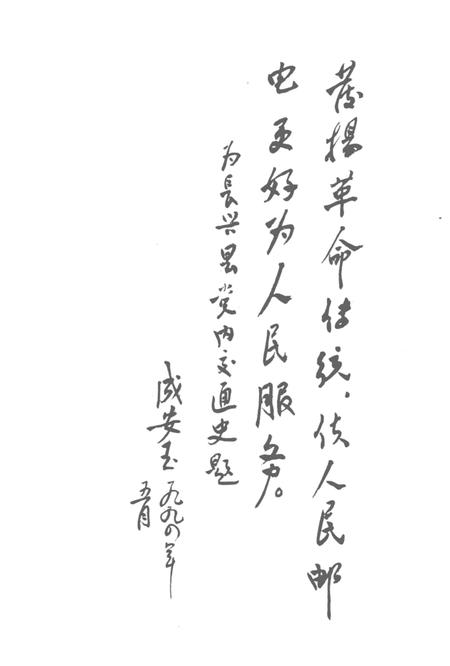 发扬革命传统，使人民邮
电更好为人民服务。
为長兴县党内交通史题
成安玉 一九九〇年
五月